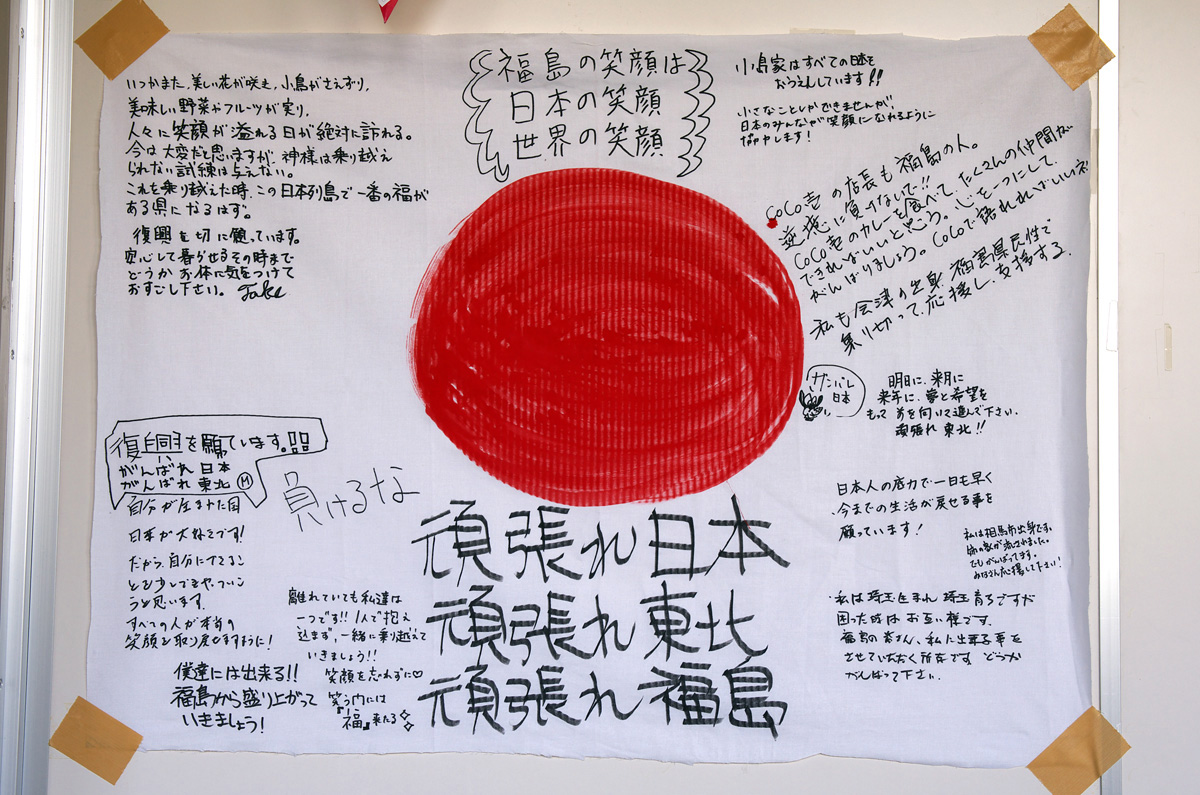 福島の笑顔は
日本の笑顔
世界の笑顔
いつかまた、美しい花が咲き、小鳥がさえずり、
美味しい野菜やフルーツが実り、
人々に笑顔が溢れる日が絶対に訪れる。
今は大変だと思いますが、神様は乗り越え
られない試練は与えない。
これを乗り越えた時、この日本列島で一番の福が
ある県になるはず。
復興を切に願っています。
安心して暮らせるその時まで
どうかお体に気をつけて
おすごし下さい。 Take
小島家はすべての日本を
おうえんしています!!
小さなことしかできませんが、
日本のみんなが笑顔になれるように
協力します!
CoCo壱の店長も福島の人。
逆境に負けないで!!
CoCo壱のカレーを食べて、たくさんの仲間が
できればいいと思う。心を一つにして、
がんばりましょう。CoCoで語れればいいネ
私も会津の出身、福島県民性で
乗り切って、応援し、支援する。
ガンバレ
日本
明日に、来月に
来年に、夢と希望を
もって 前を向いて進んで下さい。
頑張れ 東北!!
復興を願ています。!!!
がんばれ 日本
がんばれ 東北 M
負けるな
自分が産まれた国
日本が大好きです!
だから、自分にできるこ
とを少しでもやっていこ
うと思います。
すべての人が本当の
笑顔を取り戻せますように!
日本人の底力で一日も早く
今までの生活が戻せる事を
願っています!
私は相馬市出身です。
姉の家が流されました。
でもがんばってます。
みなさん応援して下さい!
頑張れ日本
頑張れ東北
頑張れ福島
離れていても私達は
一つです!! 1人で抱え
込まず、一緒に乗り越えて
いきましょう!!
笑顔を忘れずに♡
笑う門には
『福』来たる
僕達には出来る!!
福島から盛り上がって
いきましょう!
・私は埼玉生まれ 埼玉育ちですが
困った時は お互い様です。
福島の皆さん、私に出来る事を
させていただく所存です どうか
がんばって下さい。